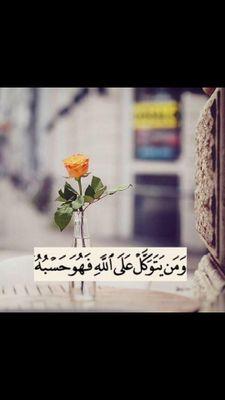 وَمَن يَتَوَكَّلْ عَلَى ٱللَّهِ فَهُوَ حَسْبُهُ